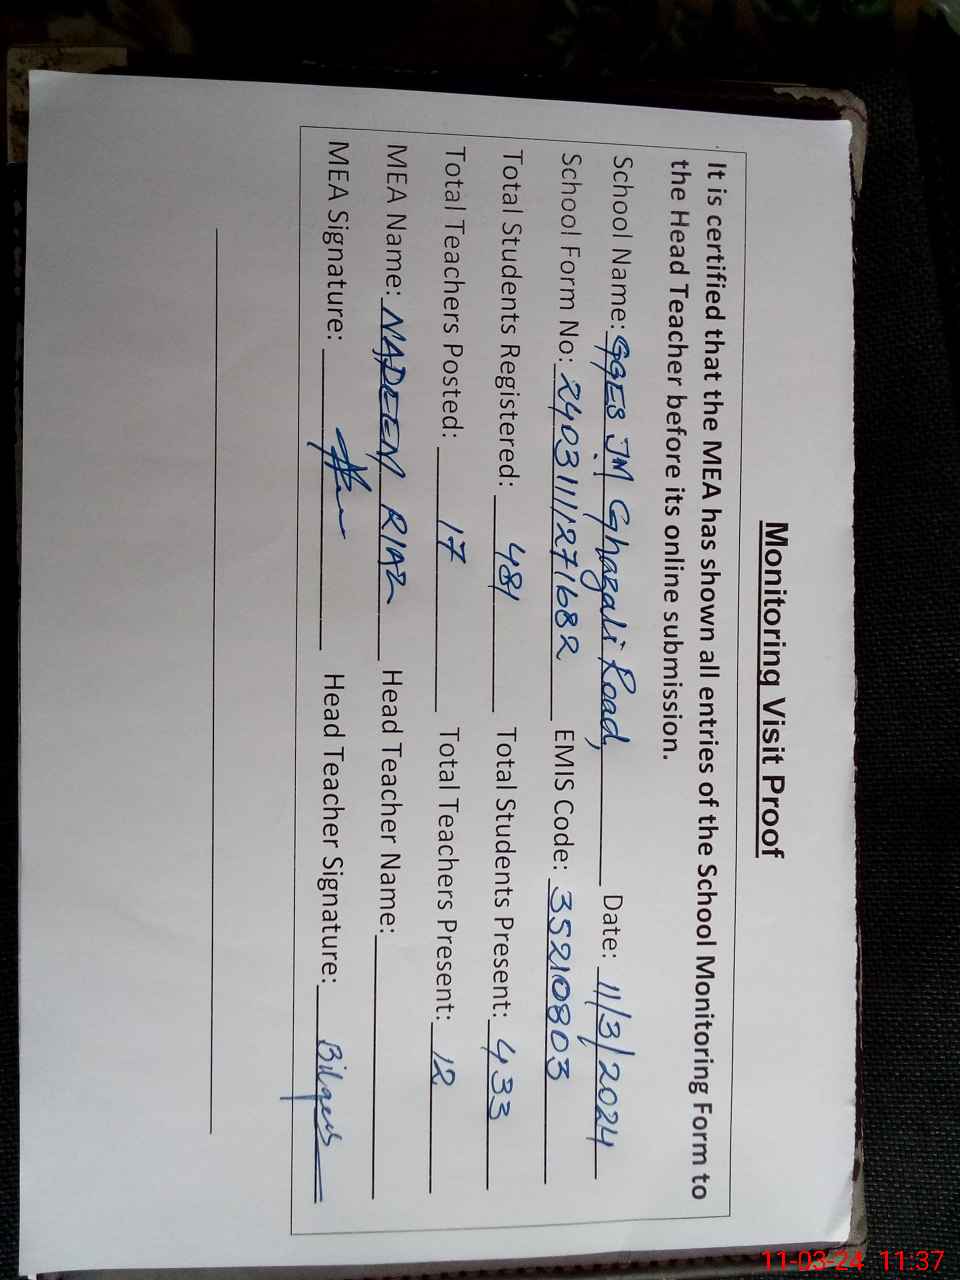 Monitoring Visit Proof
It is certified that the MEA has shown all entries of the School Monitoring Form to
the Head Teacher before its online submission.
School Name: GGES JM Ghazali Road, Date: 11/3/2024
School Form No: 2403111271682 EMIS Code: 35210803
Total Students Registered: 481 Total Students Present: 433
Total Teachers Posted: 17 Total Teachers Present: 12
MEA Name: NADEEM RIAZ Head Teacher Name:
MEA Signature: Head Teacher Signature: Bilqees
11-03-24 11:37